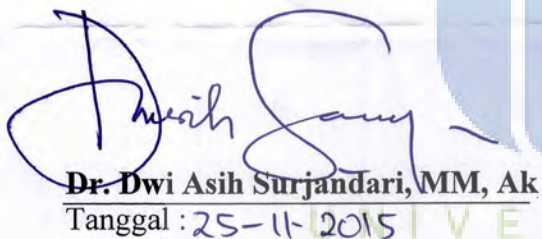 Dr. Dwi Asih Surjandari, MM, Ak
Tanggal : 25-11-2015
UNIVE